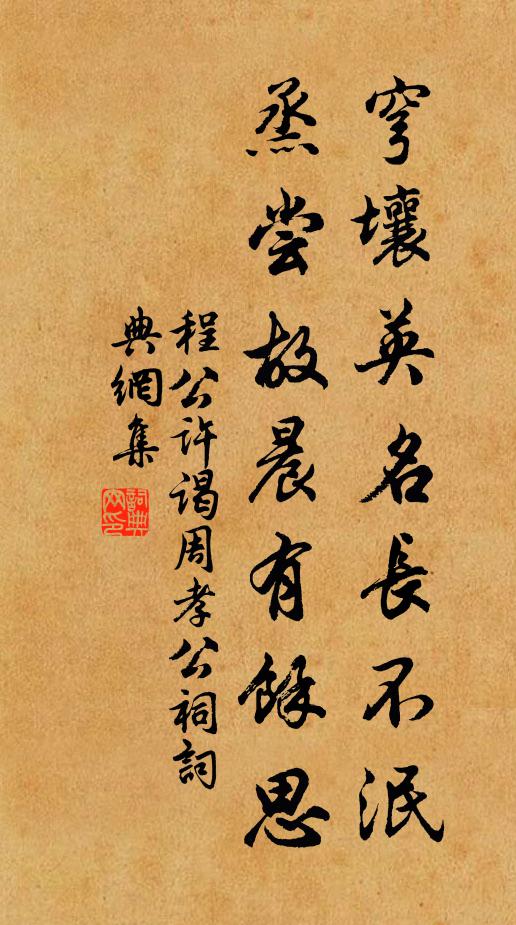 穹壤英名長不泯
烝嘗故晨有餘思
程公許謁周孝公祠詞
典網集
詞典网印